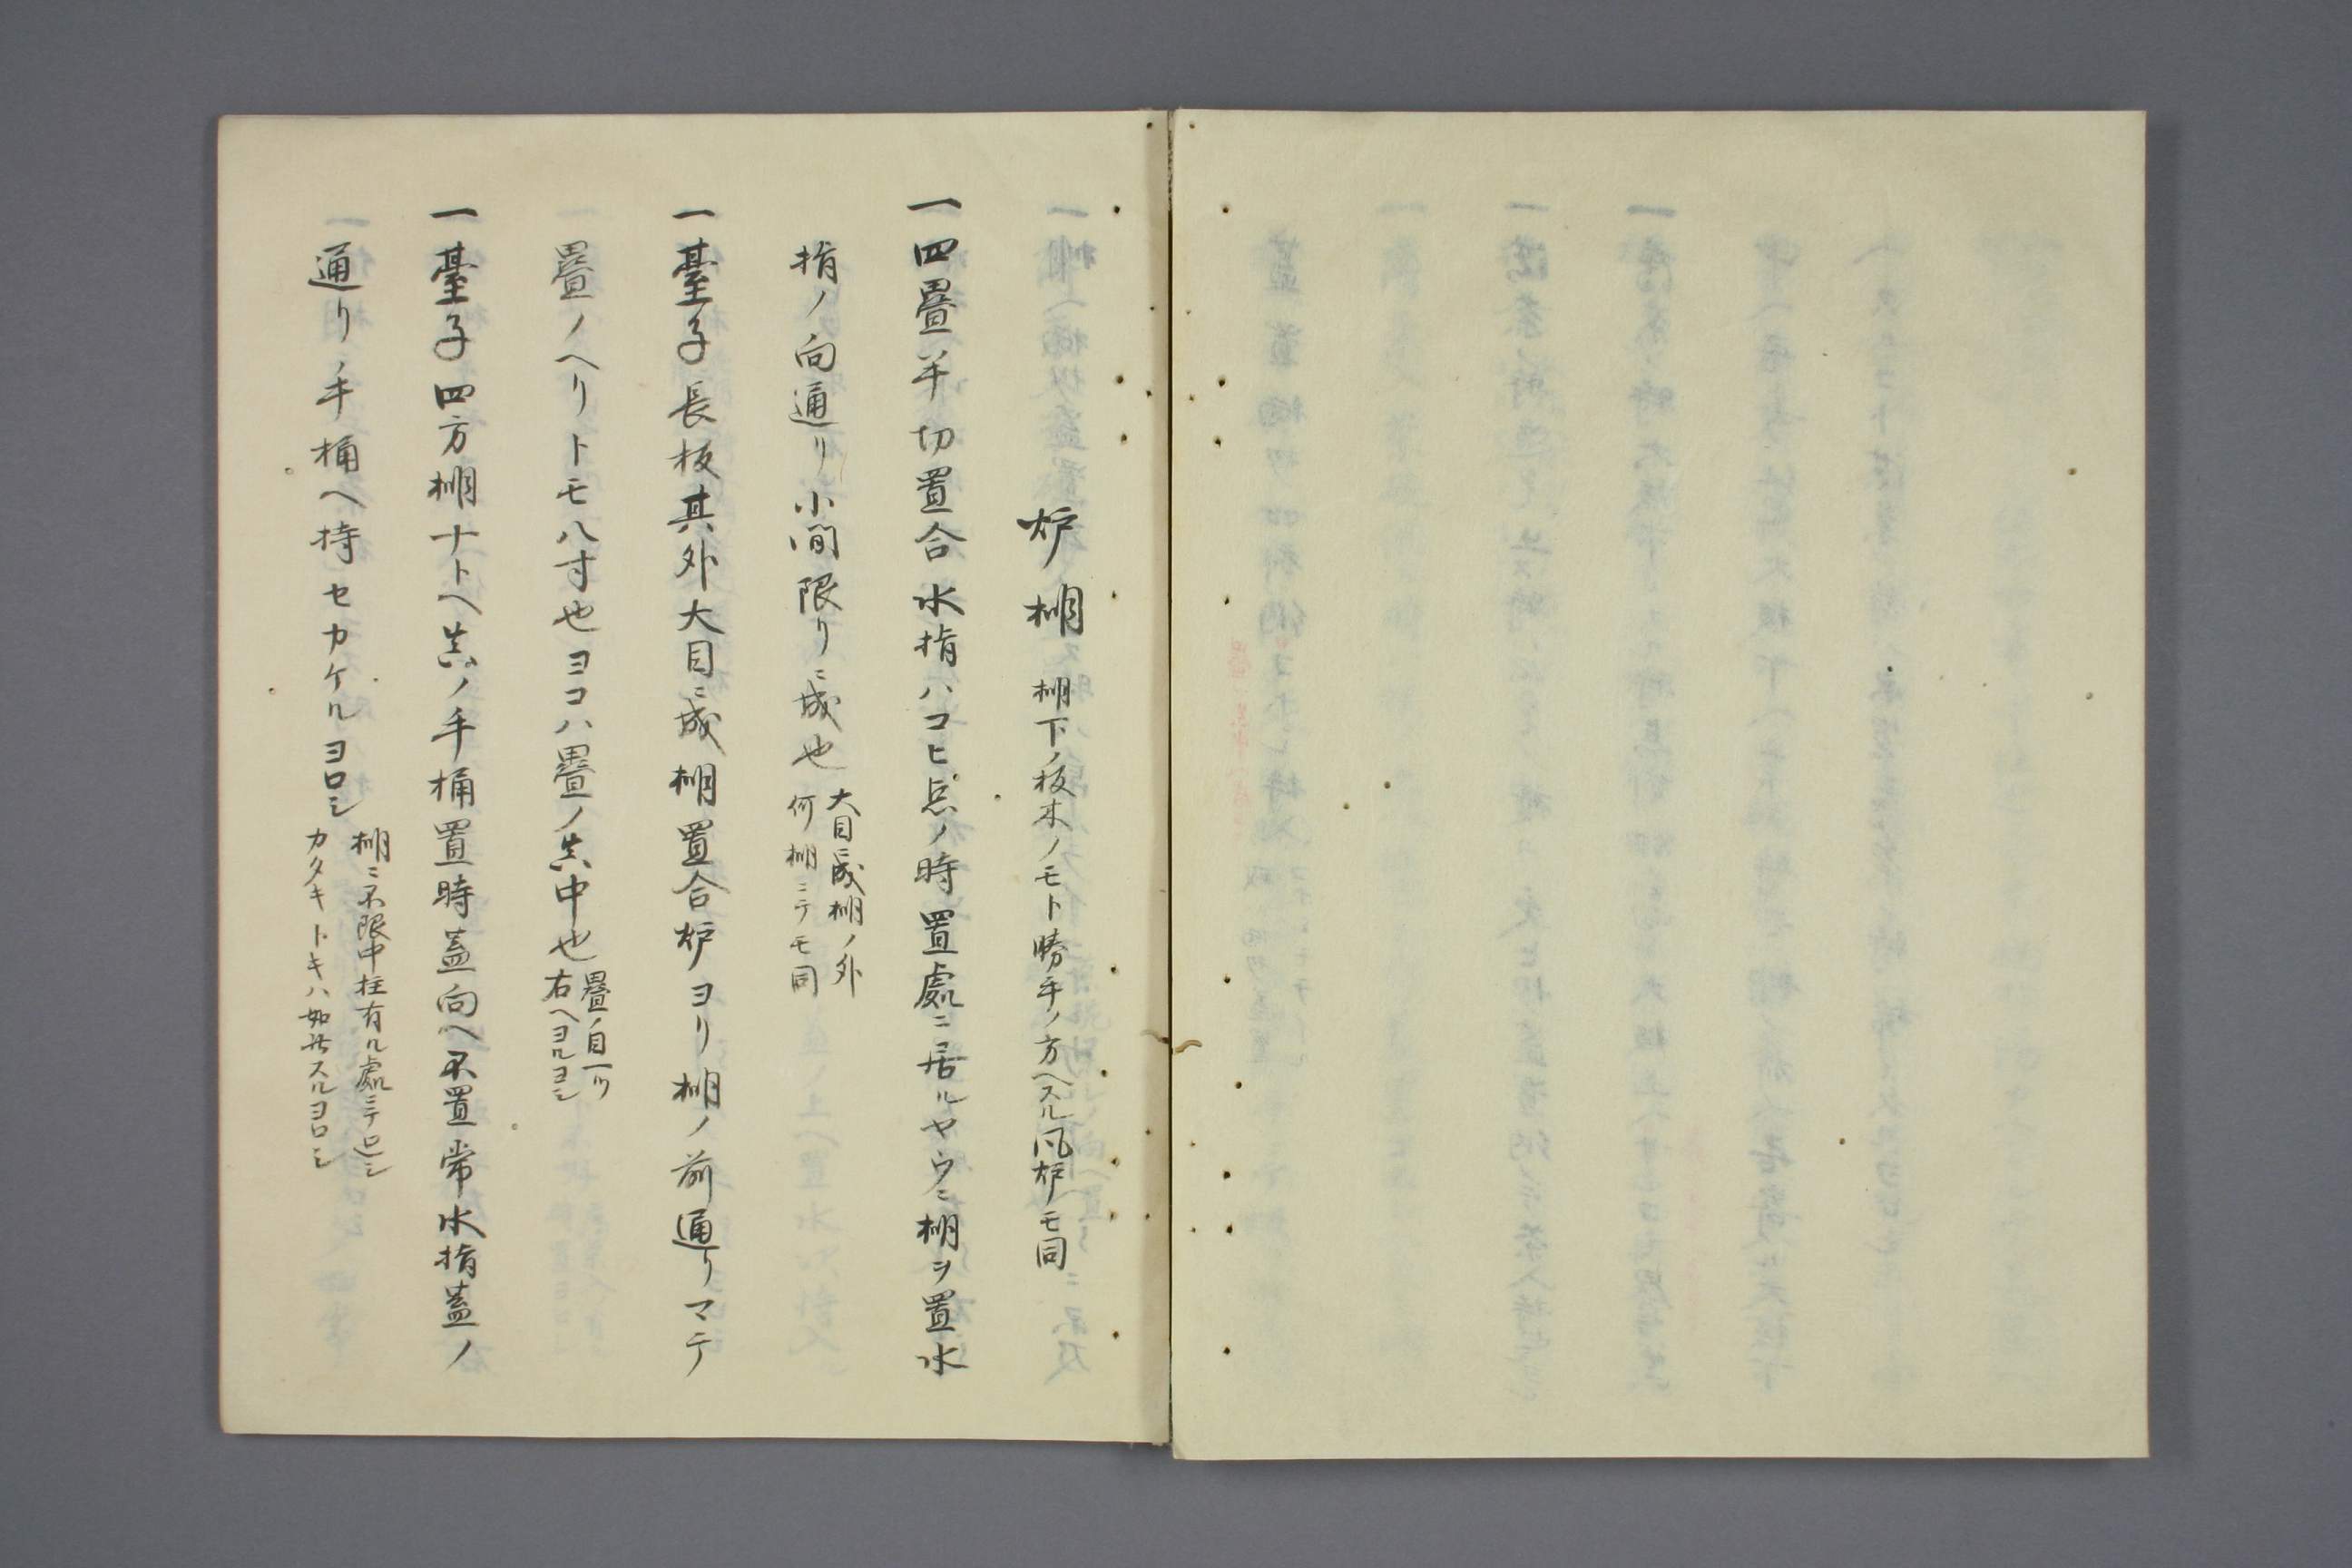 炉棚 棚下ノ板木ノモト勝手ノ方ヘスル風炉モ同
一四畳半切置合水指ハコヒ点ノ時置處ニ居ルヤウニ棚ヲ置水
指ノ向通リ小間限リニ成也
大目ニ成棚ノ外
何棚ニテモ同
一臺子長板其外大目ニ成棚置合炉ヨリ棚ノ前通リマテ
畳ノヘリトモ八寸也ヨコハ畳ノ真中也
畳ノ目一ツ
右ヘヨルヨシ
一臺子四方棚ナトヘ真ノ手桶置時蓋向ヘ不置常水指蓋ノ
通リノ手桶ヘ持セカケルヨロシ
棚ニ不限中柱有ル處ニテ
カタキトキハ如此スルヨロシ